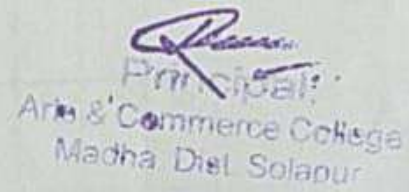 Principal
Arts & Commerce College
Madha Dist Solapur